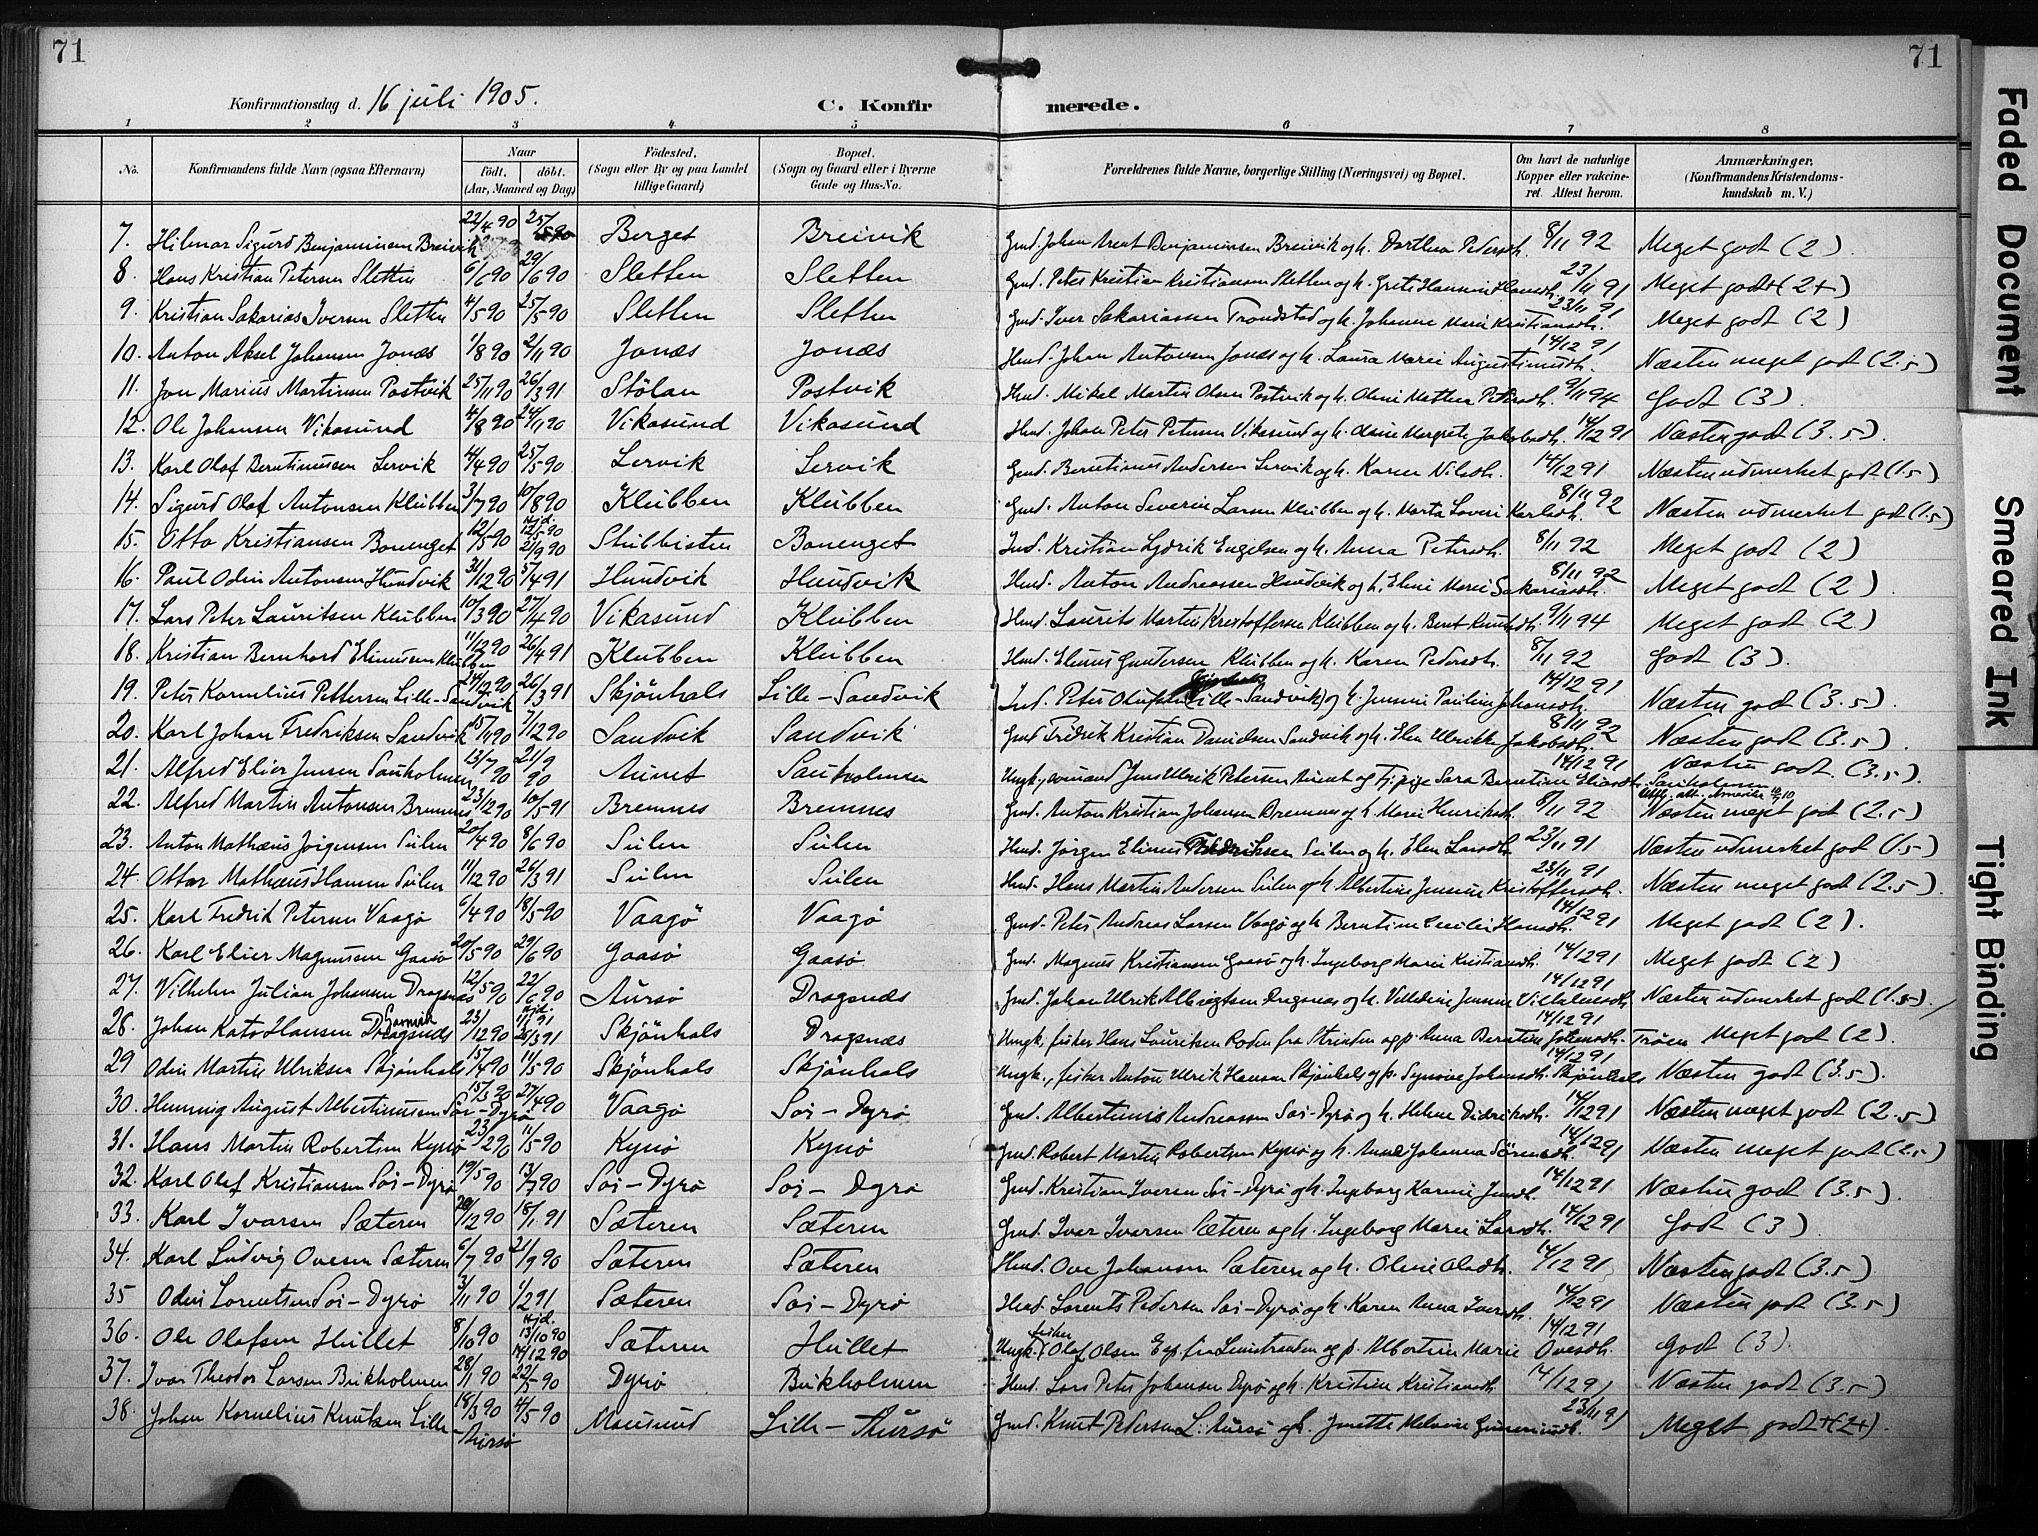 71
71
Konfirmationsdag d. 16 juli 1905.
C. Konfirmerede.
1 2 3 4 5 6 7 8
No. Konfirmandens fulde Navn (ogsaa Efternavn) Naar født. døbt. (Aar, Maaned og Dag) Födested. (Sogn eller By og paa Landet tillige Gaard) Bopæl. (Sogn og Gaard eller i Byerne Gade og Hus-No. Forældrenes fulde Navne, borgerlige Stilling (Næringsvei) og Bopæl. Om havt de naturlige Kopper eller vakcineret. Attest herom. Anmærkninger. (Konfirmandens Kristendomskundskab m. V.)
7. Hilmar Sigurd Benjaminsen Breivik 22/4 90 25/5 90 Berget Breivik Gmd. Johan Arnt Benjaminsen Breivik og h. Dorthea Pedersdt. 8/11 92 Meget godt (2).
8. Hans Kristian Petersen Sletten 6/6 90 29/6 90 Sletten Sletten Gmd. Peter Kristian Kristiansen Sletten og h. Grete Hansine Hansdt. 23/11 91 Meget godt+ (2+)
9. Kristian Sakarias Iversen Sletten 4/5 90 25/5 90 Sletten Sletten Gmd. Iver Sakariassen Trondstad og h. Johanne Marie Kristiansdt. 23/11 91 Meget godt (2)
10. Anton Aksel Johansen Jonæs 1/8 90 2/11 90 Jonæs Jonæs Hmd. Johan Antonsen Jonæs og h. Laura Marie Augustinusdt. 14/12 91 Næsten meget godt (2.5)
11. Jon Marius Martinsen Postvik 25/11 90 26/3 91 Stölan Postvik Hmd. Mikal Martin Olsen Postvik og h. Oline Mathea Petersdt. 9/11 94 Godt (3).
12. Ole Johansen Vikasund 4/8 90 24/11 90 Vikasund Vikasund Hmd. Johan Peter Petersen Vikasund og h. Olava Margrete Jakobsdt. 14/12 91 Næsten godt (3.5).
13. Karl Olaf Berntinussen Lervik 4/4 90 25/5 90 Lervik Lervik Gmd. Berntinus Andersen Lervik og h. Karen Nilsdt. 14/12 91 Næsten udmerket godt (1.5)
14. Sigurd Olaf Antonsen Klubben 3/7 90 10/8 90 Klubben Klubben Gmd. Anton Severin Larsen Klubben og h. Marta Lovise Karlsdt. 8/11 92 Næsten udmerket godt (1.5)
15. Otto Kristiansen Bonenget 12/5 90 Hjd. 12/5 90 21/9 90 Stubbisten Bonenget Ind. Kristian Lydrik Engelsen og h. Anna Petersdt. 8/11 92 Meget godt (2)
16. Paul Odin Antonsen Hundvik 31/12 90 5/4 91 Hundvik Hundvik Hmd. Anton Andreassen Hundvik og h. Eline Marie Sakariasdt. 8/11 92 Meget godt (2)
17. Lars Peter Lauritsen Klubben 10/3 90 27/4 90 Vikasund Klubben Hmd. Laurits Martin Kristoffersen Klubben og h. Berit Knutsdt. 9/11 94 Meget godt (2)
18. Kristian Bernhard Elinussen Klubben 11/12 90 26/4 91 Klubben Klubben Hmd. Elinus Gundersen Klubben og h. Karen Pedersdt. 8/11 92 Godt (3).
19. Peter Kornelius Pettersen Lille-Sandvik 24/12 90 26/3 91 Skjönhals Lille-Sandvik Ind. Peter Olufsen Lille-Sandvik og h. Jensine Pauline Johansdt. 14/12 91 Næsten godt (3.5).
20. Karl Johan Fredriksen Sandvik 15/11 90 7/12 90 Sandvik Sandvik Gmd Fredrik Kristian Danielsen Sandvik og h. Elen Ulrikke Jakobsdt. 8/11 92 Næsten godt (3.5).
21. Alfred Elier Jensen Sauholmen 13/7 90 21/9 90 Aunet Sauholmen Ungk., arm and Jens Ulrik Petersen Aunet og Pige Sara Berntine Eliasdt. Sauholmen 14/12 91 Næsten godt. (3.5).
22. Alfred Martin Antonsen Bremnes 23/12 90 10/5 91 Bremnes Bremnes Gmd. Anton Kristian Johansen Bremnes og h. Marie Henriksdt. 8/11 92 Utfl. att. Amerika 10 Næsten meget godt (2.5)
23. Anton Mathæus Jörgensen Sulen 20/4 90 8/6 90 Sulen Sulen Hmd. Jörgen Elinus Fredriksen Sulen og h. Elen Larsdt. 23/11 91 Næsten udmerket godt (1.5)
24. Ottar Mathæus Hansen Sulen 11/12 90 26/3 91 Sulen Sulen Hmd. Hans Martin Andersen Sulen og h. Albertine Jensine Kristoffersdt. 23/11 91 Næsten meget godt (2.5).
25. Karl Fredrik Petersen Vaagø 6/4 90 18/5 90 Vaagö Vaagø Gmd. Peter Andreas Larsen Vaagø og h. Berntine Cecilie Hansdt. 14/12 91 Meget godt (2).
26. Karl Elier Magnussen Gaasø 20/5 90 29/6 90 Gaasø Gaasø Gmd. Magnus Kristiansen Gaasø og h. Ingeborg Marie Kristiansdt. 14/12 91 Meget godt (2)
27. Vilhelm Julian Johansen Dragsnæs 12/5 90 22/6 90 Aursø Dragsnæs Gmd. Johan Ulrik Albrigtsen Dragsnæs og h. Velledine Jensine Vilhelmsdt. 14/12 91 Næsten udmerket godt (1.5).
28. Johan Kato Hansen Dragsnæs 23/12 90 Hjd. 11/1 91 26/3 91 Skjönhals Dragsnæs Ungk. fisker Hans Lauritsen Roden fra Strinden og p. Anna Berntine Johansdt. Tröen 14/12 91 Meget godt (2).
29 Odin Martin Ulriksen Skjönhals 15/4 90 11/5 90 Skjönhals Skjönhals Ungk., fisker Anton Ulrik Hansen Skjönhals og p. Synnöve Johansdt. Skjönhals 14/12 91 Næsten godt (3.5).
30. Henning August Albertinussen Sör-Dyrø 15/3 90 27/4 90 Vaagø Sör-Dyrø Gmd. Albertinus Andreassen Sör-Dyrø og h. Helene Didriksdt. 14/12 91 Næsten meget godt (2.5)
31. Hans Martin Robertsen Kynø 23/2 90 11/5 90 Kynø Kynø Gmd. Robert Martin Robertsen Kynø og h. Anna Johanna Sörensdt. 14/12 91 Næsten meget godt (2.5)
32. Karl Olaf Kristiansen Sör-Dyrø 19/5 90 13/7 90 Sör-Dyrø Sör-Dyrø Gmd. Kristian Iversen Sör-Dyrø og h. Ingeborg Karine Jensdt. 14/12 91 Næsten godt (3.5).
33. Karl Ivarsen Sæteren 28/12 90 18/1 91 Sæteren Sæteren Gmd. Iver Iversen Sæteren og h. Ingeborg Marie Larsdt. 14/12 91 Godt (3)
34. Karl Ludvig Ovesen Sæteren 6/7 90 21/9 90 Sæteren Sæteren Hmd. Ove Johansen Sæteren og h. Oline Olsdt. 14/12 91 Næsten godt (3.5)
35 Odin Lorentsen Sör-Dyrø 3/11 90 1/2 91 Sæteren Sör-Dyrø Hmd. Lorents Pedersen Sör-Dyrø og h. Karen Anna Iversdt. 14/12 91 Næsten godt (3.5)
36. Ole Olafsen Hullet 8/10 90 Hjd. 13/10 90 14/12 90 Sæteren Hullet Ungk. fisker Olaf Olsen fra Lensstranden og p. Albertine Marie Ovesdt. 14/12 91 Godt (3).
37. Ivar Theodor Larsen Burkholmen 28/1 90 22/5 90 Dyrø Burkholmen Hmd. Lars Peter Johansen Dyrø og h. Kristine Kristiansdt. 14/12 91 Næsten godt (3.5)
38. Johan Kornelius Knutsen Lille-Aursø 18/3 90 4/5 90 Mausund Lille-Aursø Gmd. Knut Pedersen L. Aursø og h. Jonette Melvine Gunneriusdt. 23/11 91 Meget godt+ (2+).
Faded Document
Smeared Ink
Tight Binding